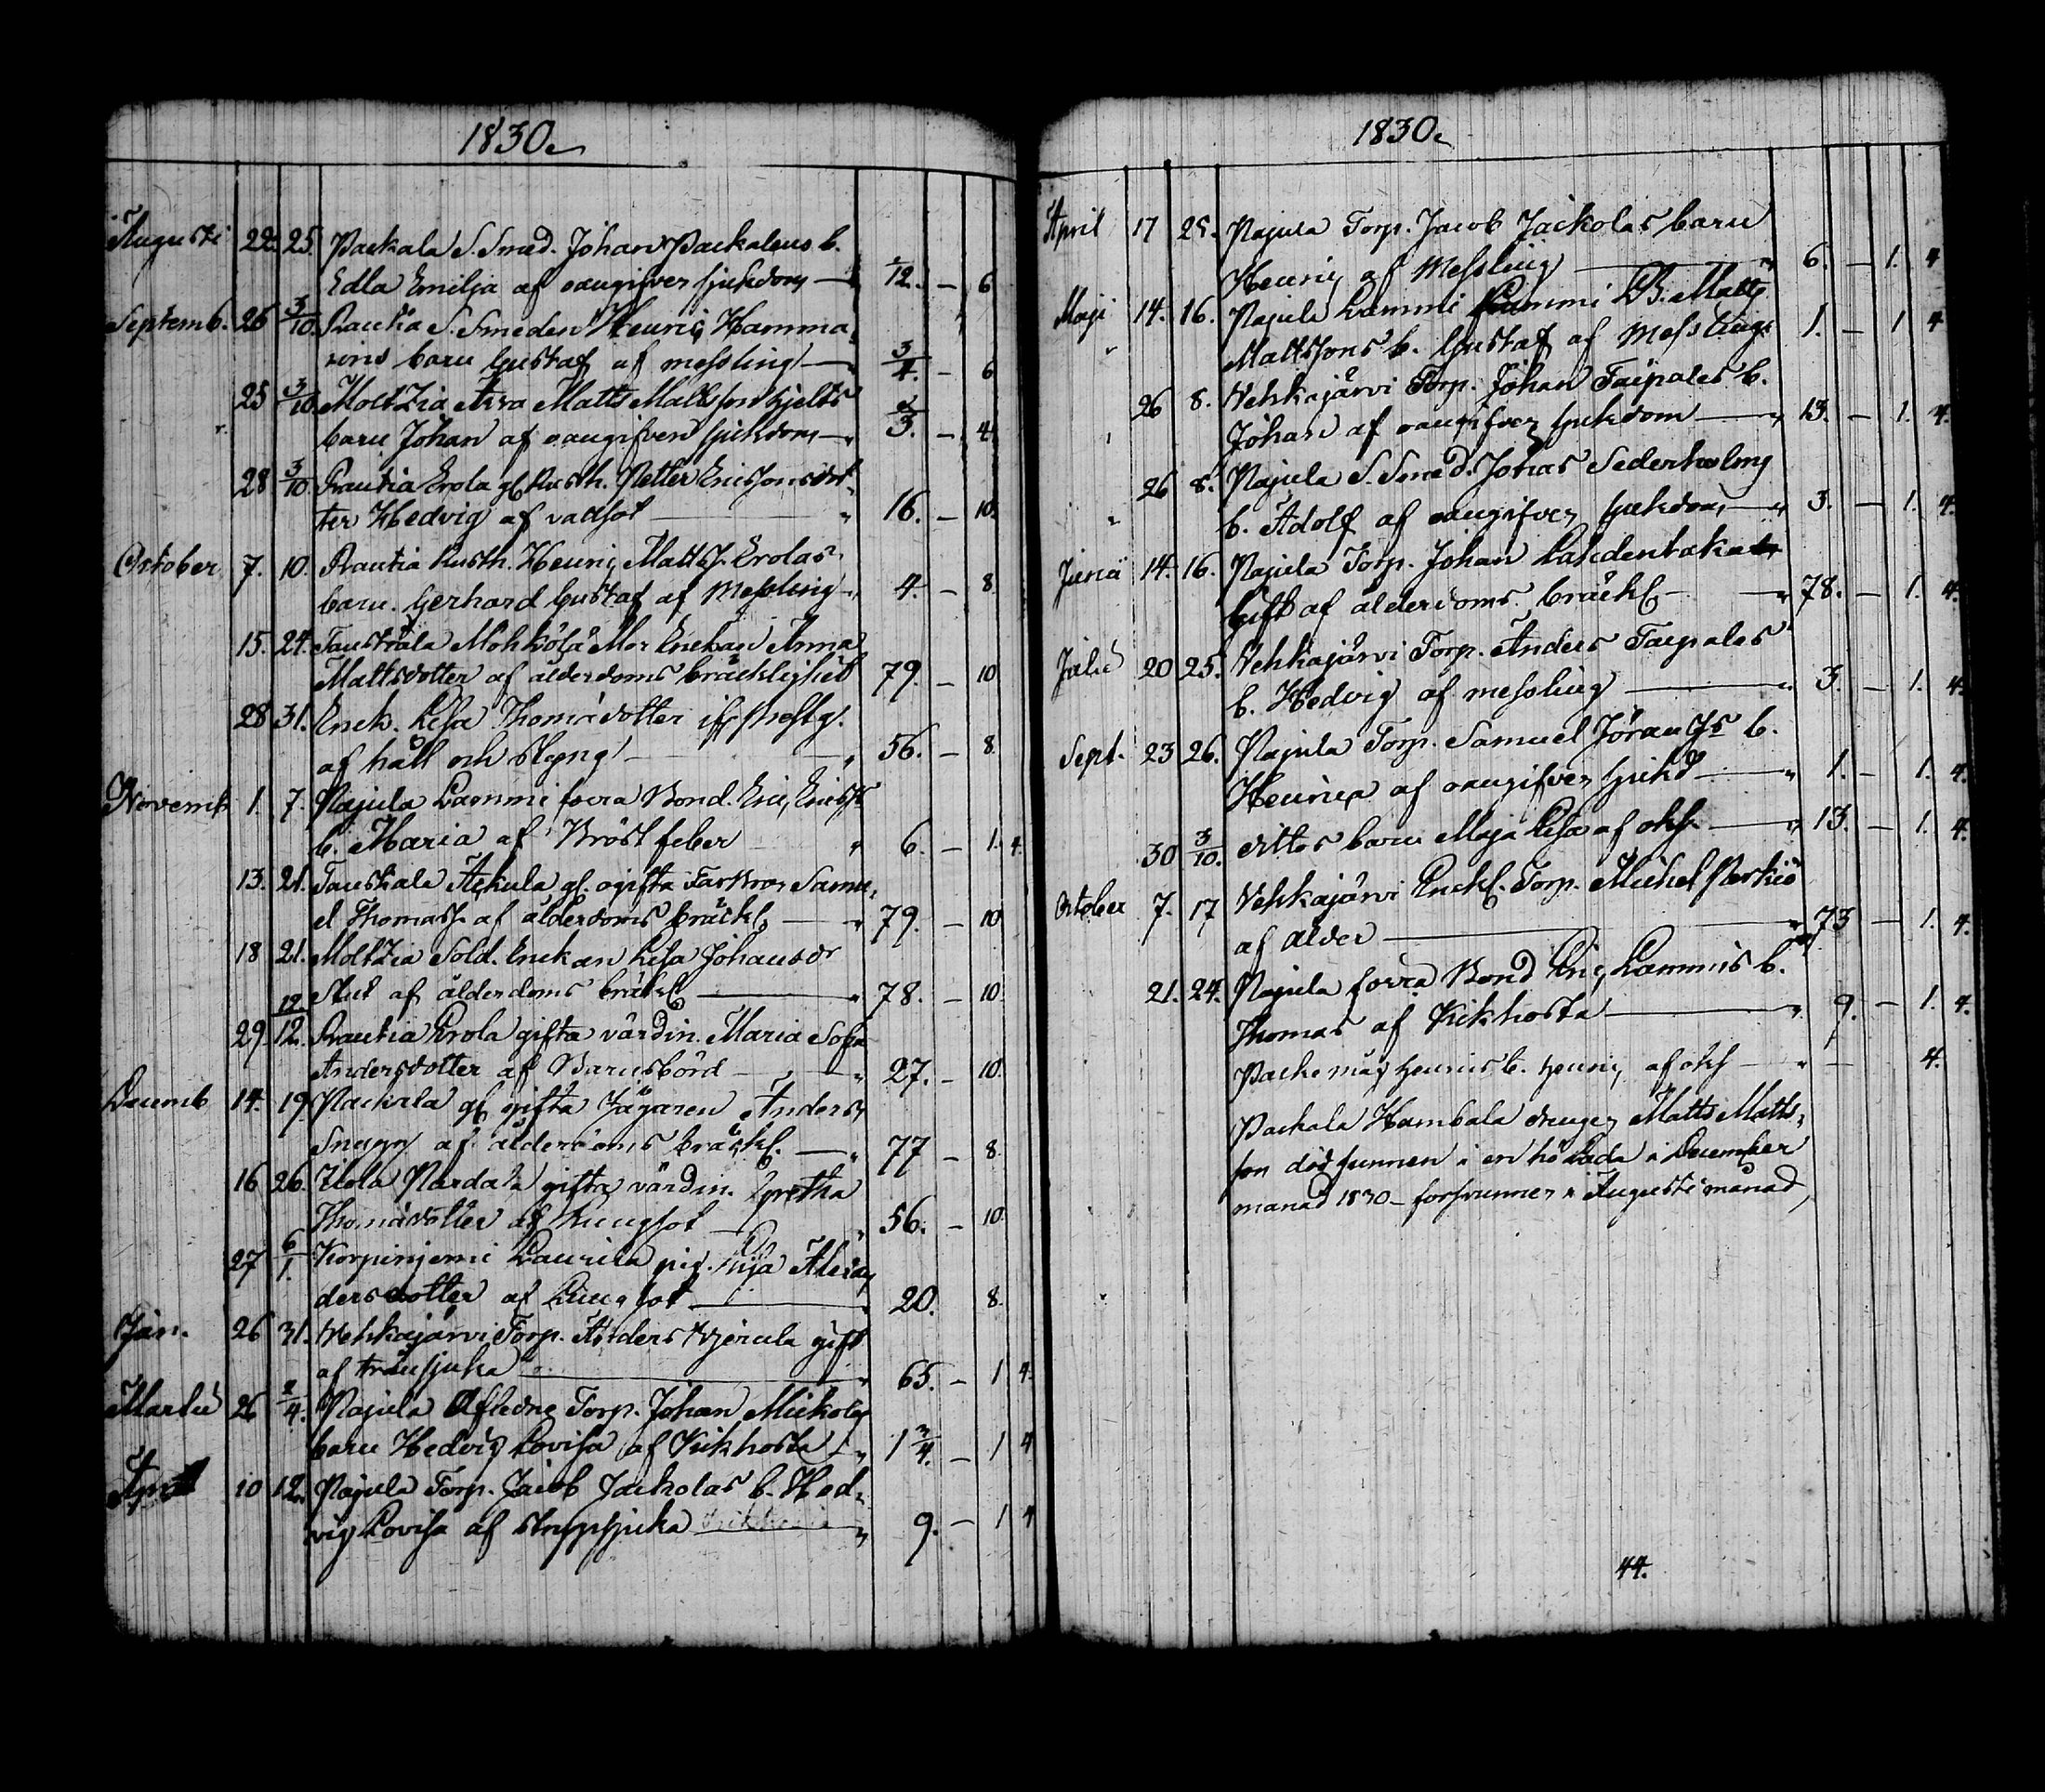 1830.
Augusti 22. 25. Packala S. Smed. Johan Packalens b.
Edla Emilja af oangifven sjukdom — 1/12. — 6
Septemb. 26 3/10 Rautia S. Smeden Henric Hamma
rens barn Gustaf af messling — 3/4. — 6
25 3/10. Moltzia Arra Matts Mattsson Hjelts
barn Johan af oangifven sjukdom — 2/3. — 4.
28 3/10. Rautia Erola gl. Rusth. Petter Ericssons dot
ter Hedvig af vadsot — 16. — 10.
October 7. 10. Rautia Rusth. Henric Mattss. Erolas
barn. Gerhard Gustaf af Messling 4. — 8.
15. 24. Mohkölä Mor Enekan Anna
Mattsdotter af ålderdoms bräcklighet 79. — 10
28 31. Enck. Lisa Thomædotter
af håll och styng — 56. — 8.
Novemb 1. 7. Pajula Lammi forra Bond. Eric Ericss
b. Maria af Bröstfeber 6. — 1. 4.
13. 21. gl. ogifta Farbror Samu
el Thomass. af ålderdoms bräckl. — 79. — 10
18 21. Moltzia Sold. Enckan Lisa Johansdr
af ålderdoms bräckl — 78. — 10.
29. 12/12. Rautia Erola gifta värdin. Maria Sofia
Andersdotter af Barnsbörd — 27. — 10.
Decemb 14. 19. Packala gl gifta Jägaren Anders
af ålderdoms bräckl. — 77 — 8.
16 26. gifta värdin. Gretha
Thomædotter af Lungsot 56. — 10.
27 6/1. Korpinjemi Laurila pig.
dersdotter af Lungsot — 20. 8.
Jan. 26 31. Vehkajärvi Torp. Anders gift
af — 65. — 1 4.
Martii 26 2/4. Pajula Afledne Torp. Johan Mickolas
barn Hedvig Lovisa af Kikhosta — 1 3/4. — 1 4
April 10 12. Pajula Torp. Jacob Jackolas b. Hed
vig Lovisa af strypsjuka — 9. — 1 4
1830.
April 17 25. Pajula Torp. Jacob Jackolas barn
Henric af Messling — 6. — 1. 4
Maji 14. 16. Pajula Lammi Matts
Mattssons b. Gustaf af Messling 1. — 1 4
26 8. Vehkajärvi Torp. Johan Taipales b.
Johan af oangifven sjukdom — 13. — 1. 4.
26 8. Pajula S. Smed. Johas Sederholms
b. Adolf af oangifven sjukdom — 3. — 1. 4.
Junii 14. 16. Pajula Torp. Johan
gift af ålderdoms bräckl — 78. — 1. 4.
Julii 20 25. Vehkajärvi Torp. Anders Taipales
b. Hedvig af messling — 3. — 1. 4.
Sept. 23 26. Pajula Torp. Samuel b.
Henrica af oangifven sjukd — 1. — 1. 4.
30 3/10. dittos barn Maja Lisa af — 13. — 1. 4.
October 7. 17 Vehkajärvi Enckl. Torp. Michel
af ålder — 73 — 1. 4.
21. 24. Pajula forra Bond Eric Lammis b.
Thomas af Kikhosta — 9. — 1. 4.
b. Henric af — 4.
Packala Hambala drengen Matts Matts
son död funnen i en hö Lada i December
månad 1830 — forsvunnen i Augusti månad
44.